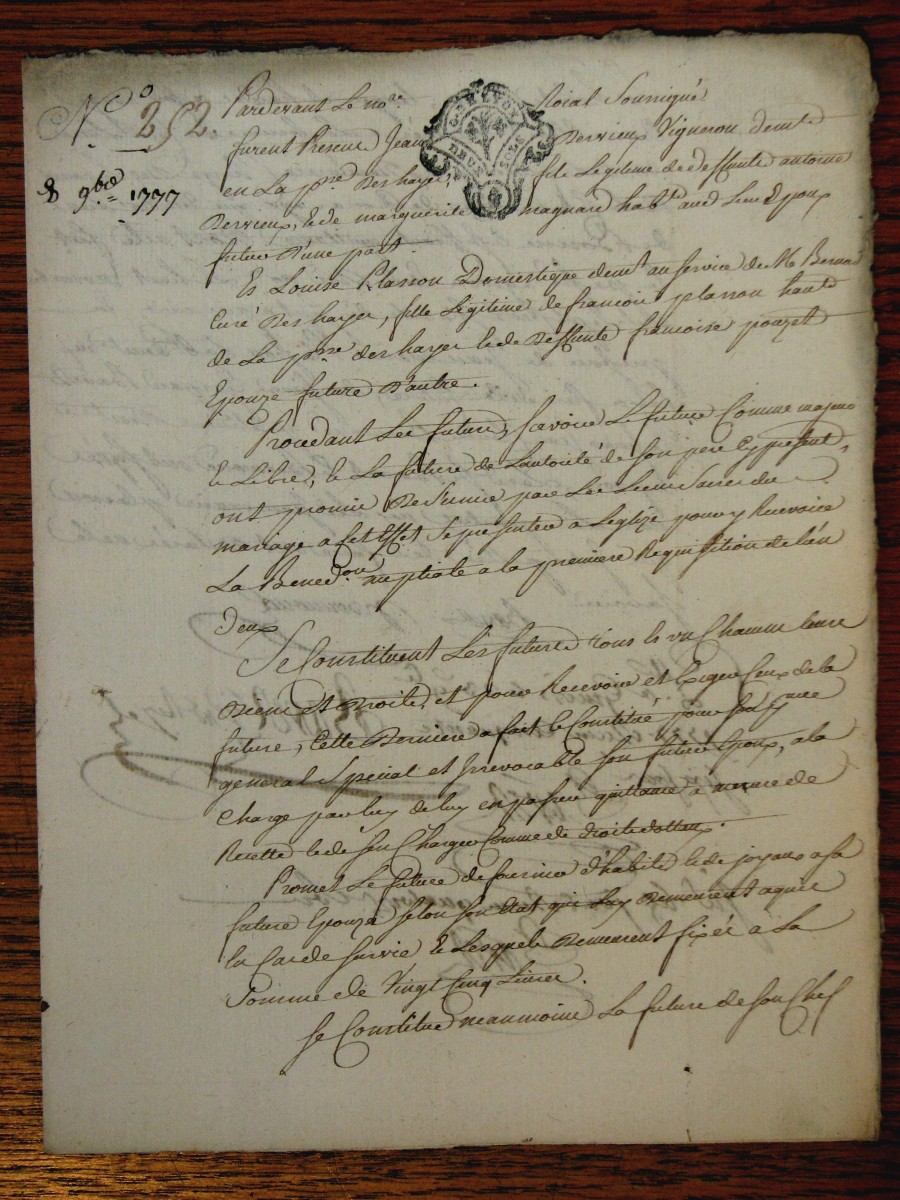 N.o 252.
8 9bre 1777
GEN. DE LYON
DEUX SOLS
Pardevant Le no.re Roial Soussigné
furent Presens Jean Dervieux Vigneron demt
en La p.sse Des hayes, fils Legitime de deffunts antoine
Dervieux, et de marguerite magnard habt. aud. Lieu Epoux
futur d'une part.
Et Louise Plasson Domestique demt au service de Mr Bernard
Curé Des hayes, fille Légitime de francois plasson habt
de La p.sse des hayes et de Deffunte francoise pouzet
Epouze future D'autre.
Procedant Les futurs, savoir Le futur Comme majeur
et Libre, et La future de L'autorité de son pere Cy present,
ont promis de s'unir par Les Liens Sacrés du
mariage a cet Effet se presenter a L'eglize pour y Recevoir
La Bened.on nuptiale a la premiere Requisition de L'un
Deux
Se Constituent Les futurs tous Les Chacun Leurs
Biens et Droits, et pour Recevoir et Exiger Ceux de la
future, Cette Derniere a fait et Constitué pour son
general Special et Irrevocable son futur Epoux, a la
Charge par luy de luy en passer quittance a mesure de
Recette et de s'en Charger Comme de droits dottaux.
Promet Le futur de fournir d'habits et de joyaux a sa
future Epouze selon son Etat qui Luy Demeureront aquis
En Cas de survie et Lesquels Demeurent fixés à La
Somme de Vingt Cinq Livres.
Se Constitue neanmoins La future de son Chef